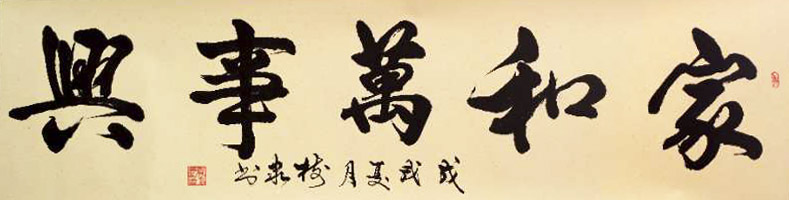 家和萬事興
戊戌夏月 书